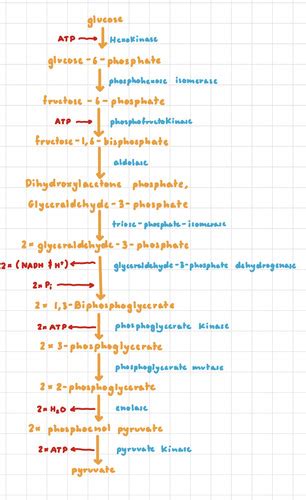 glucose
ATP → Hexokinase
glucose-6-phosphate
phosphohexose isomerase
fructose-6-phosphate
ATP → phosphofructokinase
fructose-1,6-bisphosphate
aldolase
Dihydroxylacetone phosphate,
Glyceraldehyde-3-phosphate
triose-phosphate-isomerase
2x glyceraldehyde-3-phosphate
2x (NADH & H⁺) ← glyceraldehyde-3-phosphate dehydrogenase
2x Pi →
2x 1,3-Biphosphoglycerate
2x ATP ← phosphoglycerate kinase
2x 3-phosphoglycerate
phosphoglycerate mutase
2x 2-phosphoglycerate
2x H₂O ← enolase
2x phosphoenol pyruvate
2x ATP ← pyruvate kinase
pyruvate